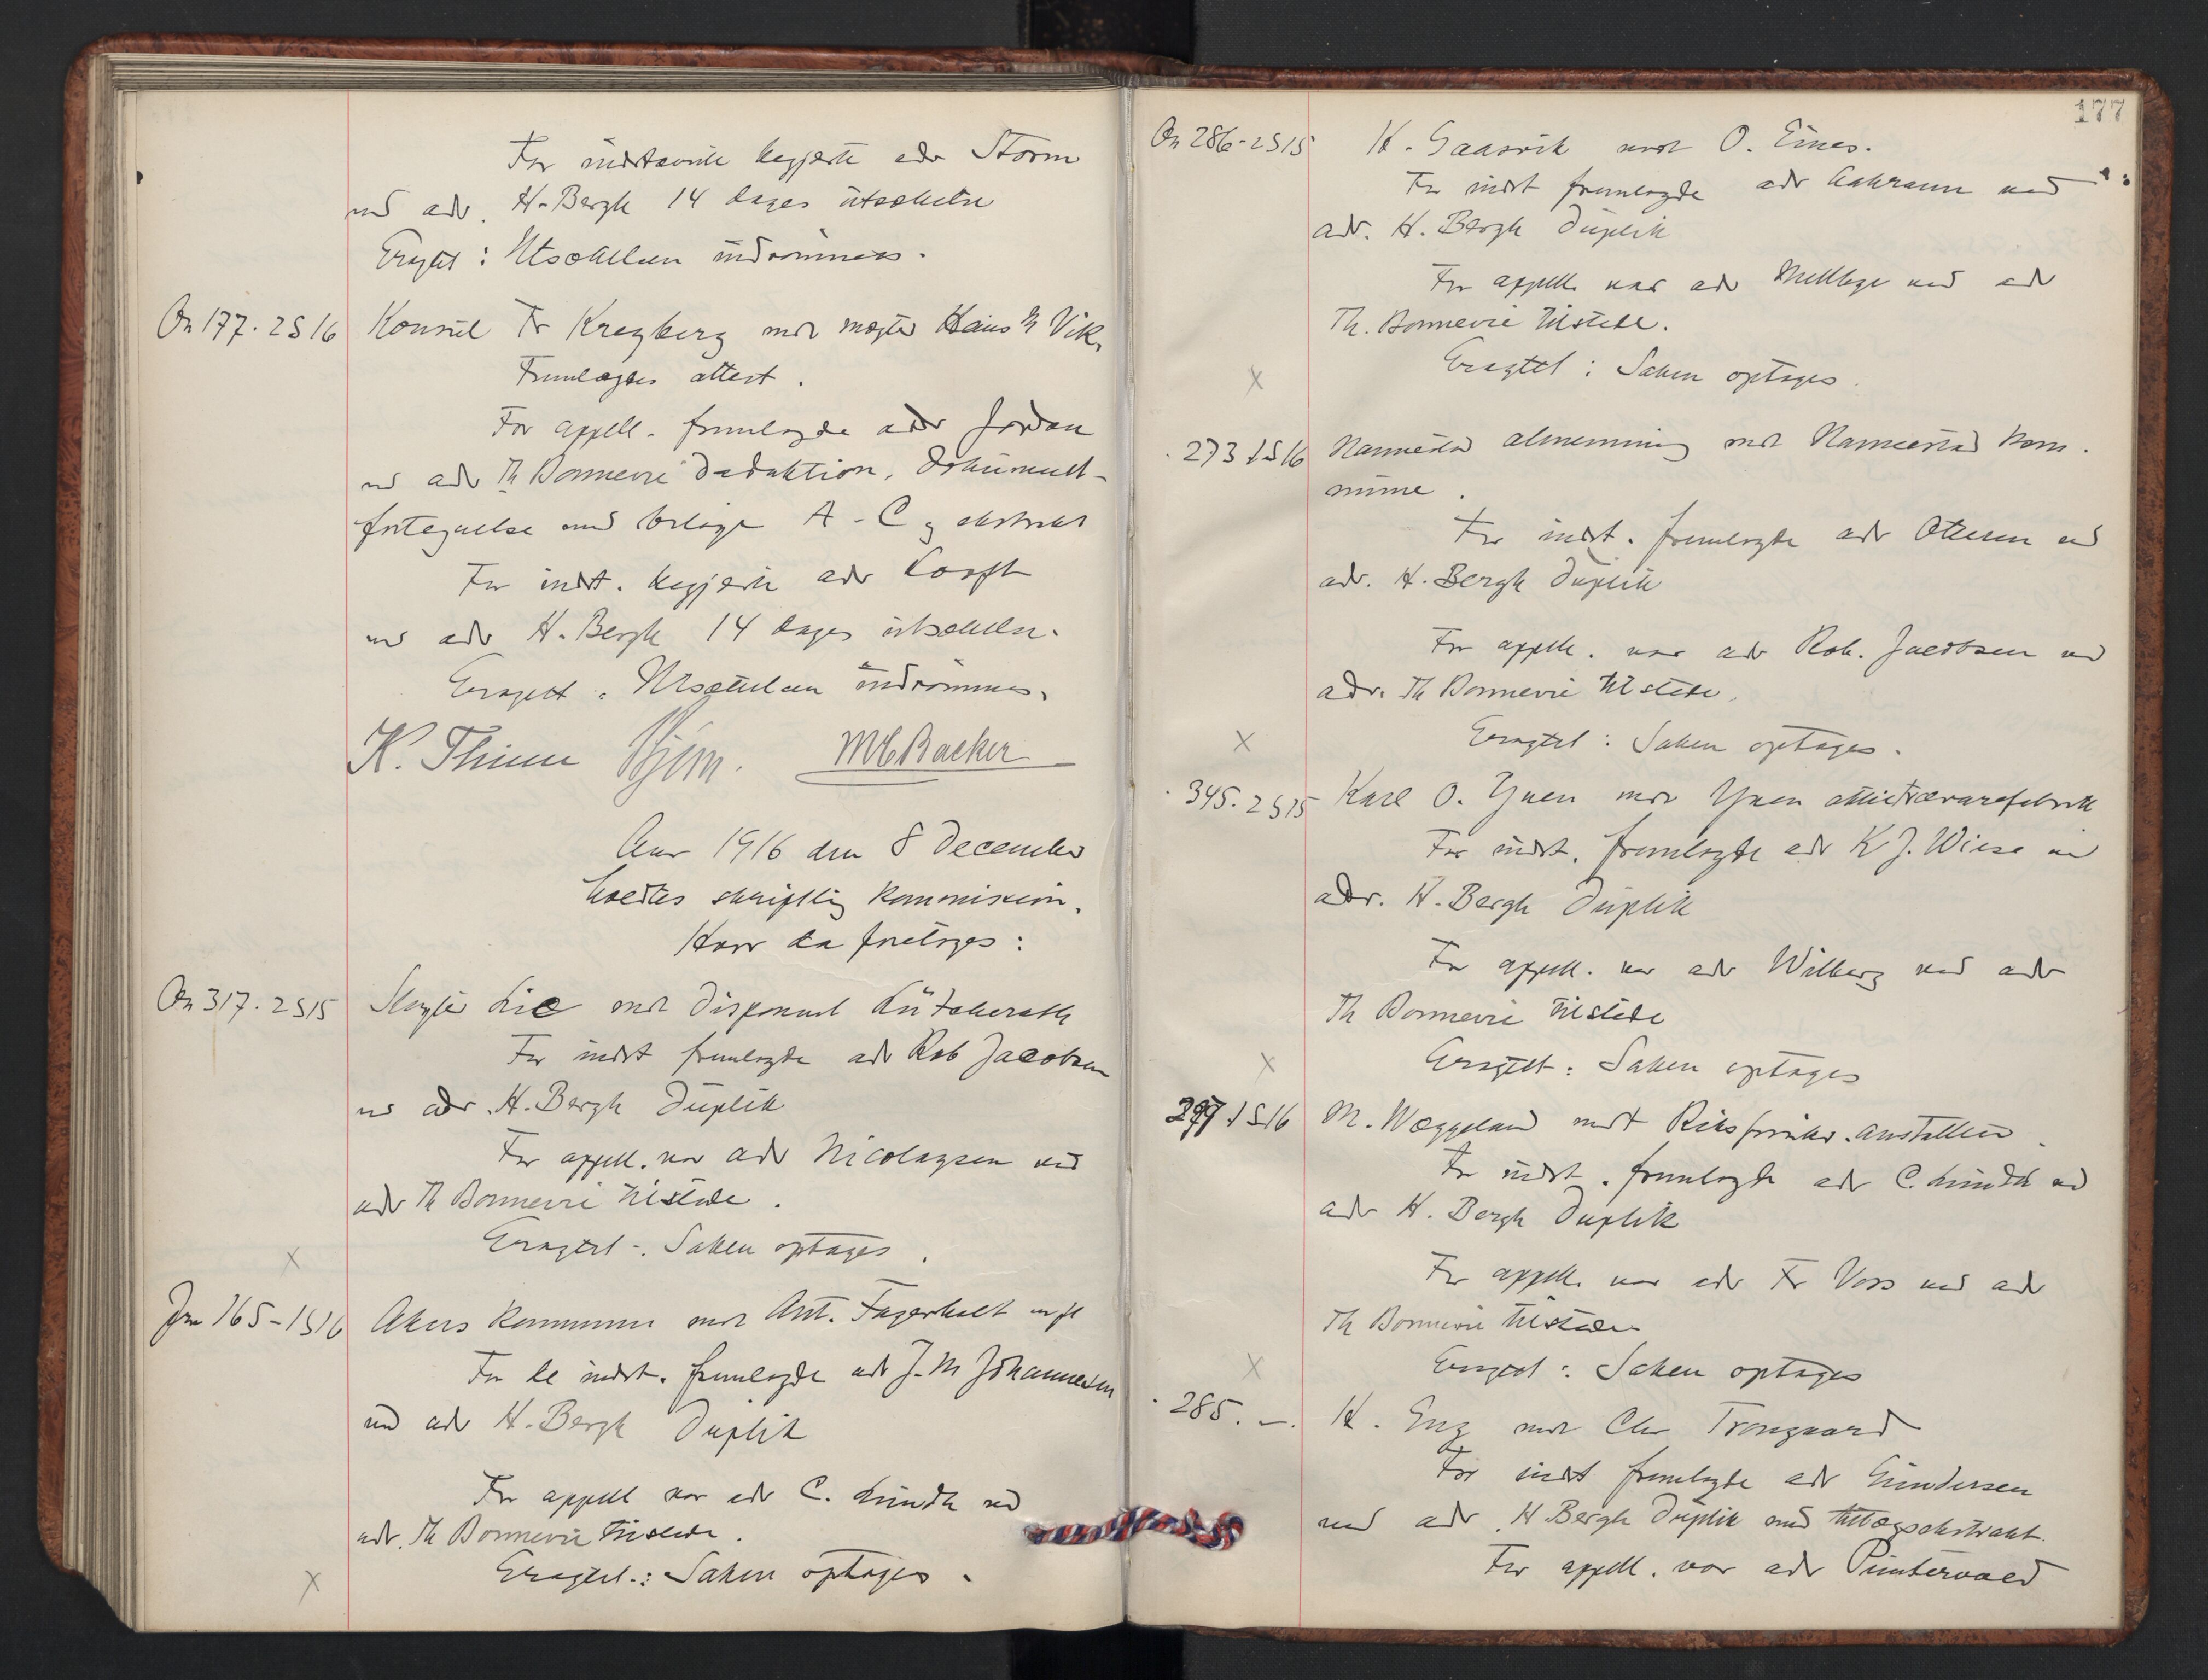 For indstevnte begjærte adv Storm
ved adv. H. Bergh 14 dages utsættelse
Eragtet: Utsættelsen indrømmes.
On 177. 2S16 Konsul Fr Kreyberg mot megler Hans H Vik.
Fremlagdes attest.
For appell. fremlagde adv Jordan
ved adv Th Bonnevie deduktion, dokument-
fortegnelse med bilage A-C og ekstrakt
For indst. begjærte adv Looft
ved adv H. Bergh 14 dages utsættelse.
Eragtet: Utsættelsen indrømmes.
K. Thinn MCBacker
Aar 1916 den 8 december
holdtes skriftlig kommission.
Hvor da foretoges:
On 317. 2S15 Megler Lie mot disponent Lütcherath
For indst fremlagde adv Rob Jacobsen
ved adv. H. Bergh Duplik
For appell. var adv Nicolaysen ved
adv Th Bonnevie tilstede.
Eragtet: Saken optages.
x
Jm 165-1S16 Akers kommune mot Ant. Fagerholt m fl
For de indst. fremlagde adv J. M Johannesen
ved adv H. Bergh Duplik
For appell var adv C. Lundh ved
adv. Th Bonnevie tilstede.
Eragtet: Saken optages.
x
177
On 286-2S15 K. Gaasvik mot O. Eines.
For indst fremlagde adv Aakrann ved
adv. H. Bergh Duplik
For appell. var adv Mellbye ved adv
Th. Bonnevie tilstede.
Eragtet: Saken optages.
x
273 1S16 Nannestad almenning mot Nannestad kom-
mune.
For indst. fremlagde adv Ottesen ved
adv. H. Bergh Duplik
For appell. var adv Rob. Jacobsen ved
adv. Th Bonnevie tilstede.
Eragtet: Saken optages.
x
345. 2S15 Karl O. Ynen mot Ynen
For indst. fremlagde adv K J. Wiese ved
adv. H. Bergh Duplik
For appell. var adv Wilberg ved adv
Th Bonnevie tilstede
Eragtet: Saken optages
x
1S16 M. Wæggeland mot Riksforsikr. anstalten.
For indst. fremlagde adv C. Lundh ved
adv H. Bergh Duplik
For appell. var adv Fr Voss ved adv
Th Bonnevie tilstede
Eragtet: Saken optages
x
285. —. H. Eng mot Chr Trongaard
For indst fremlagde adv Gundersen
ved adv. H. Bergh Duplik med tillægsekstrakt.
For appell. var adv Puntervold